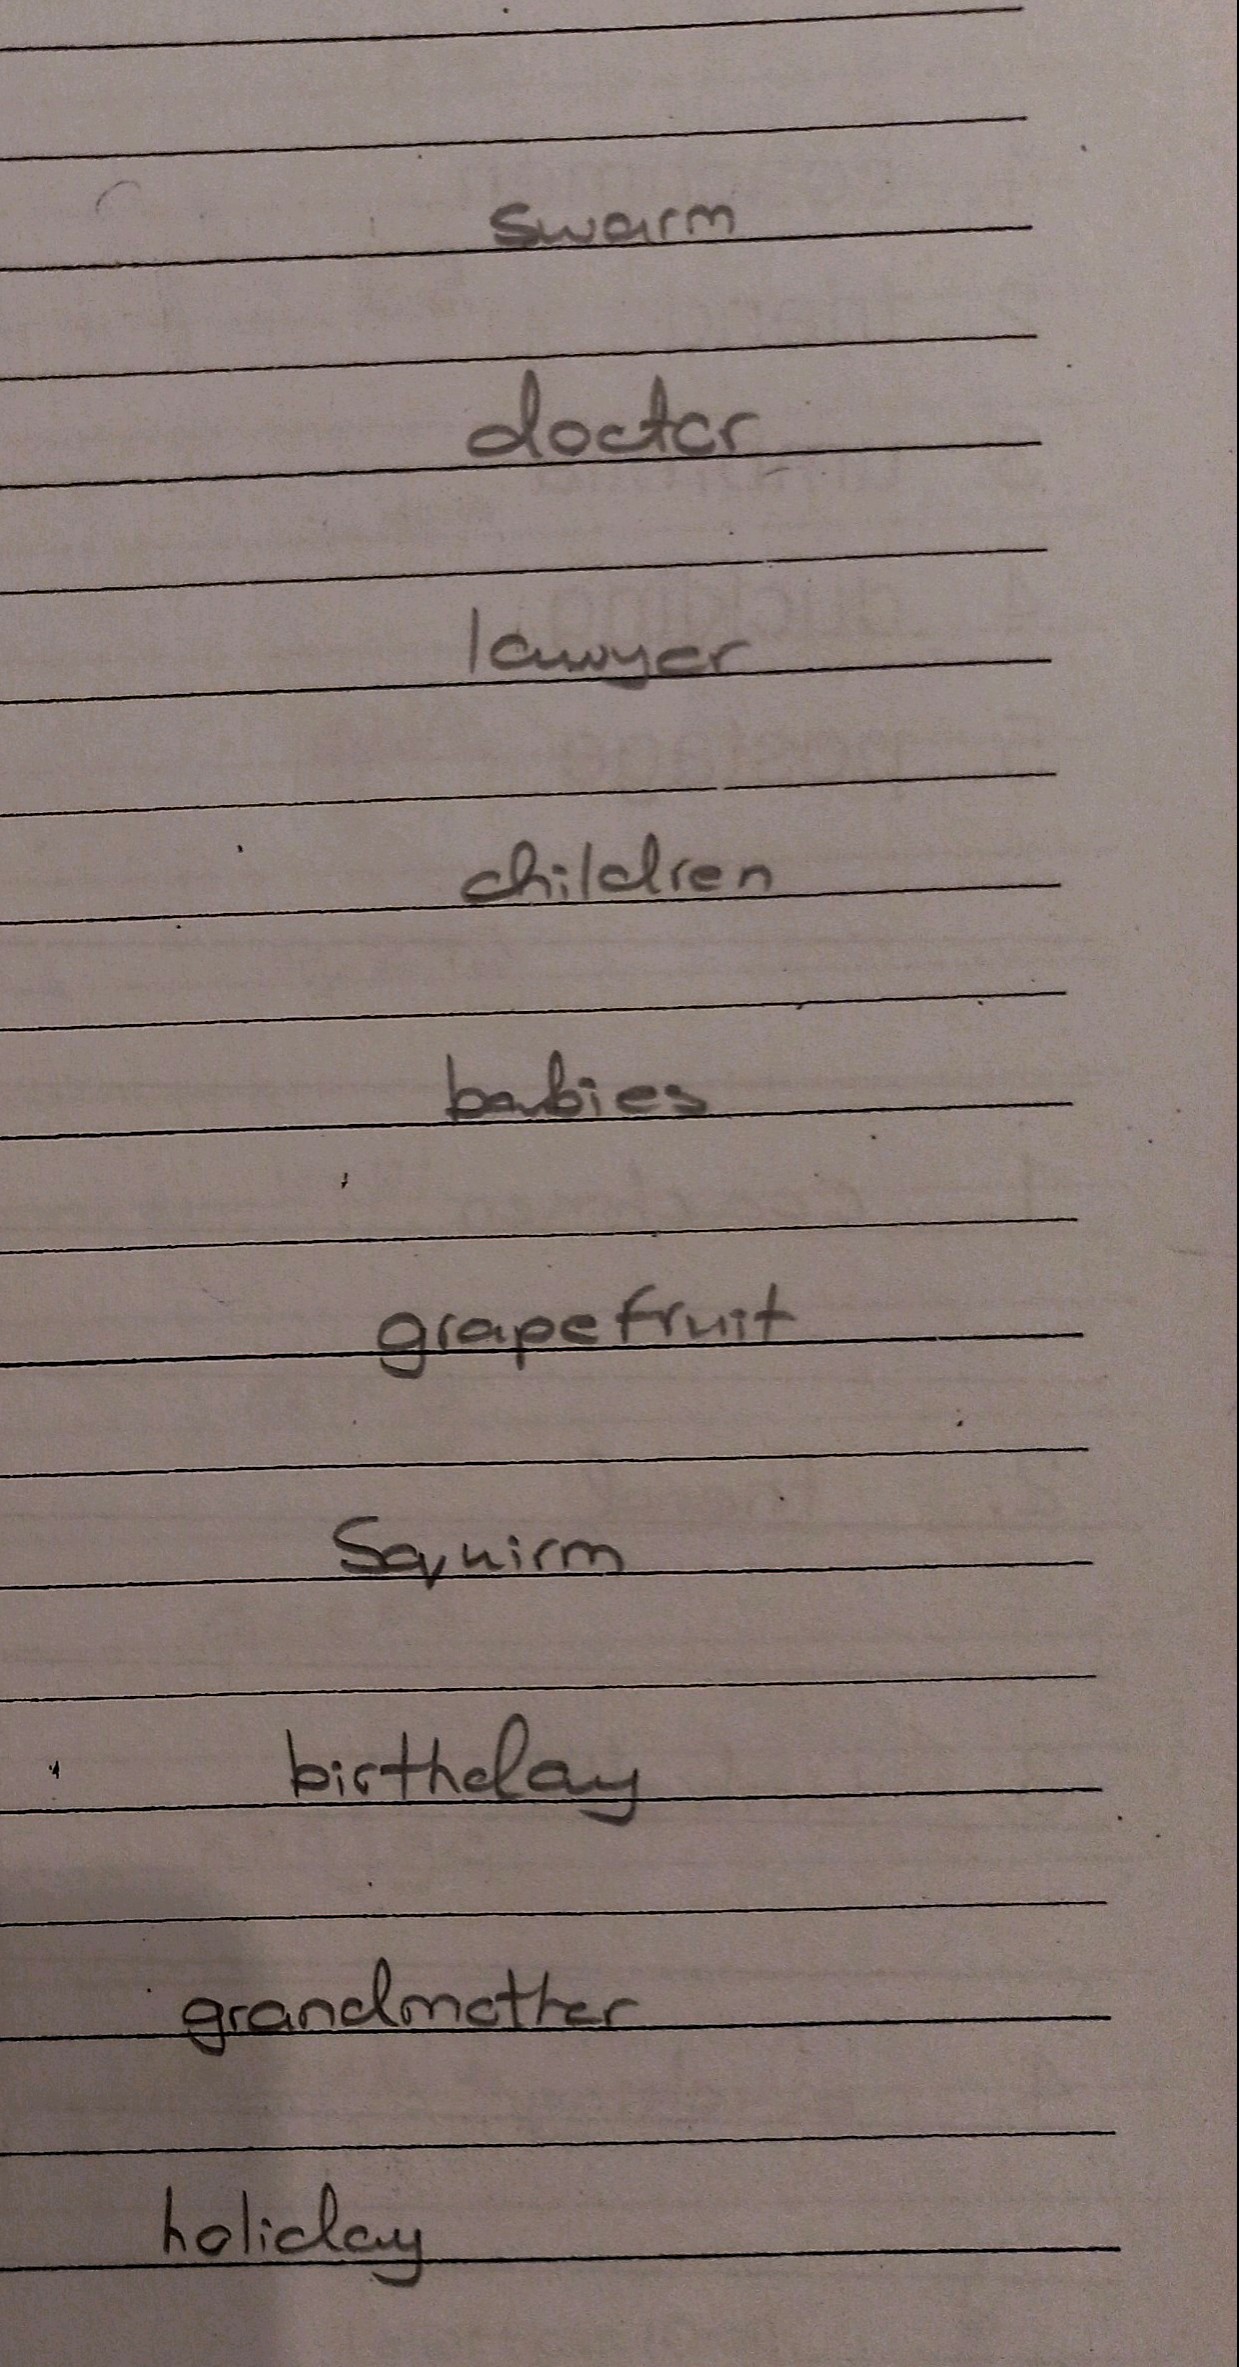 swarm
doctor
lawyer
children
babies
grapefruit
Squirm
birthday
grandmother
holiday